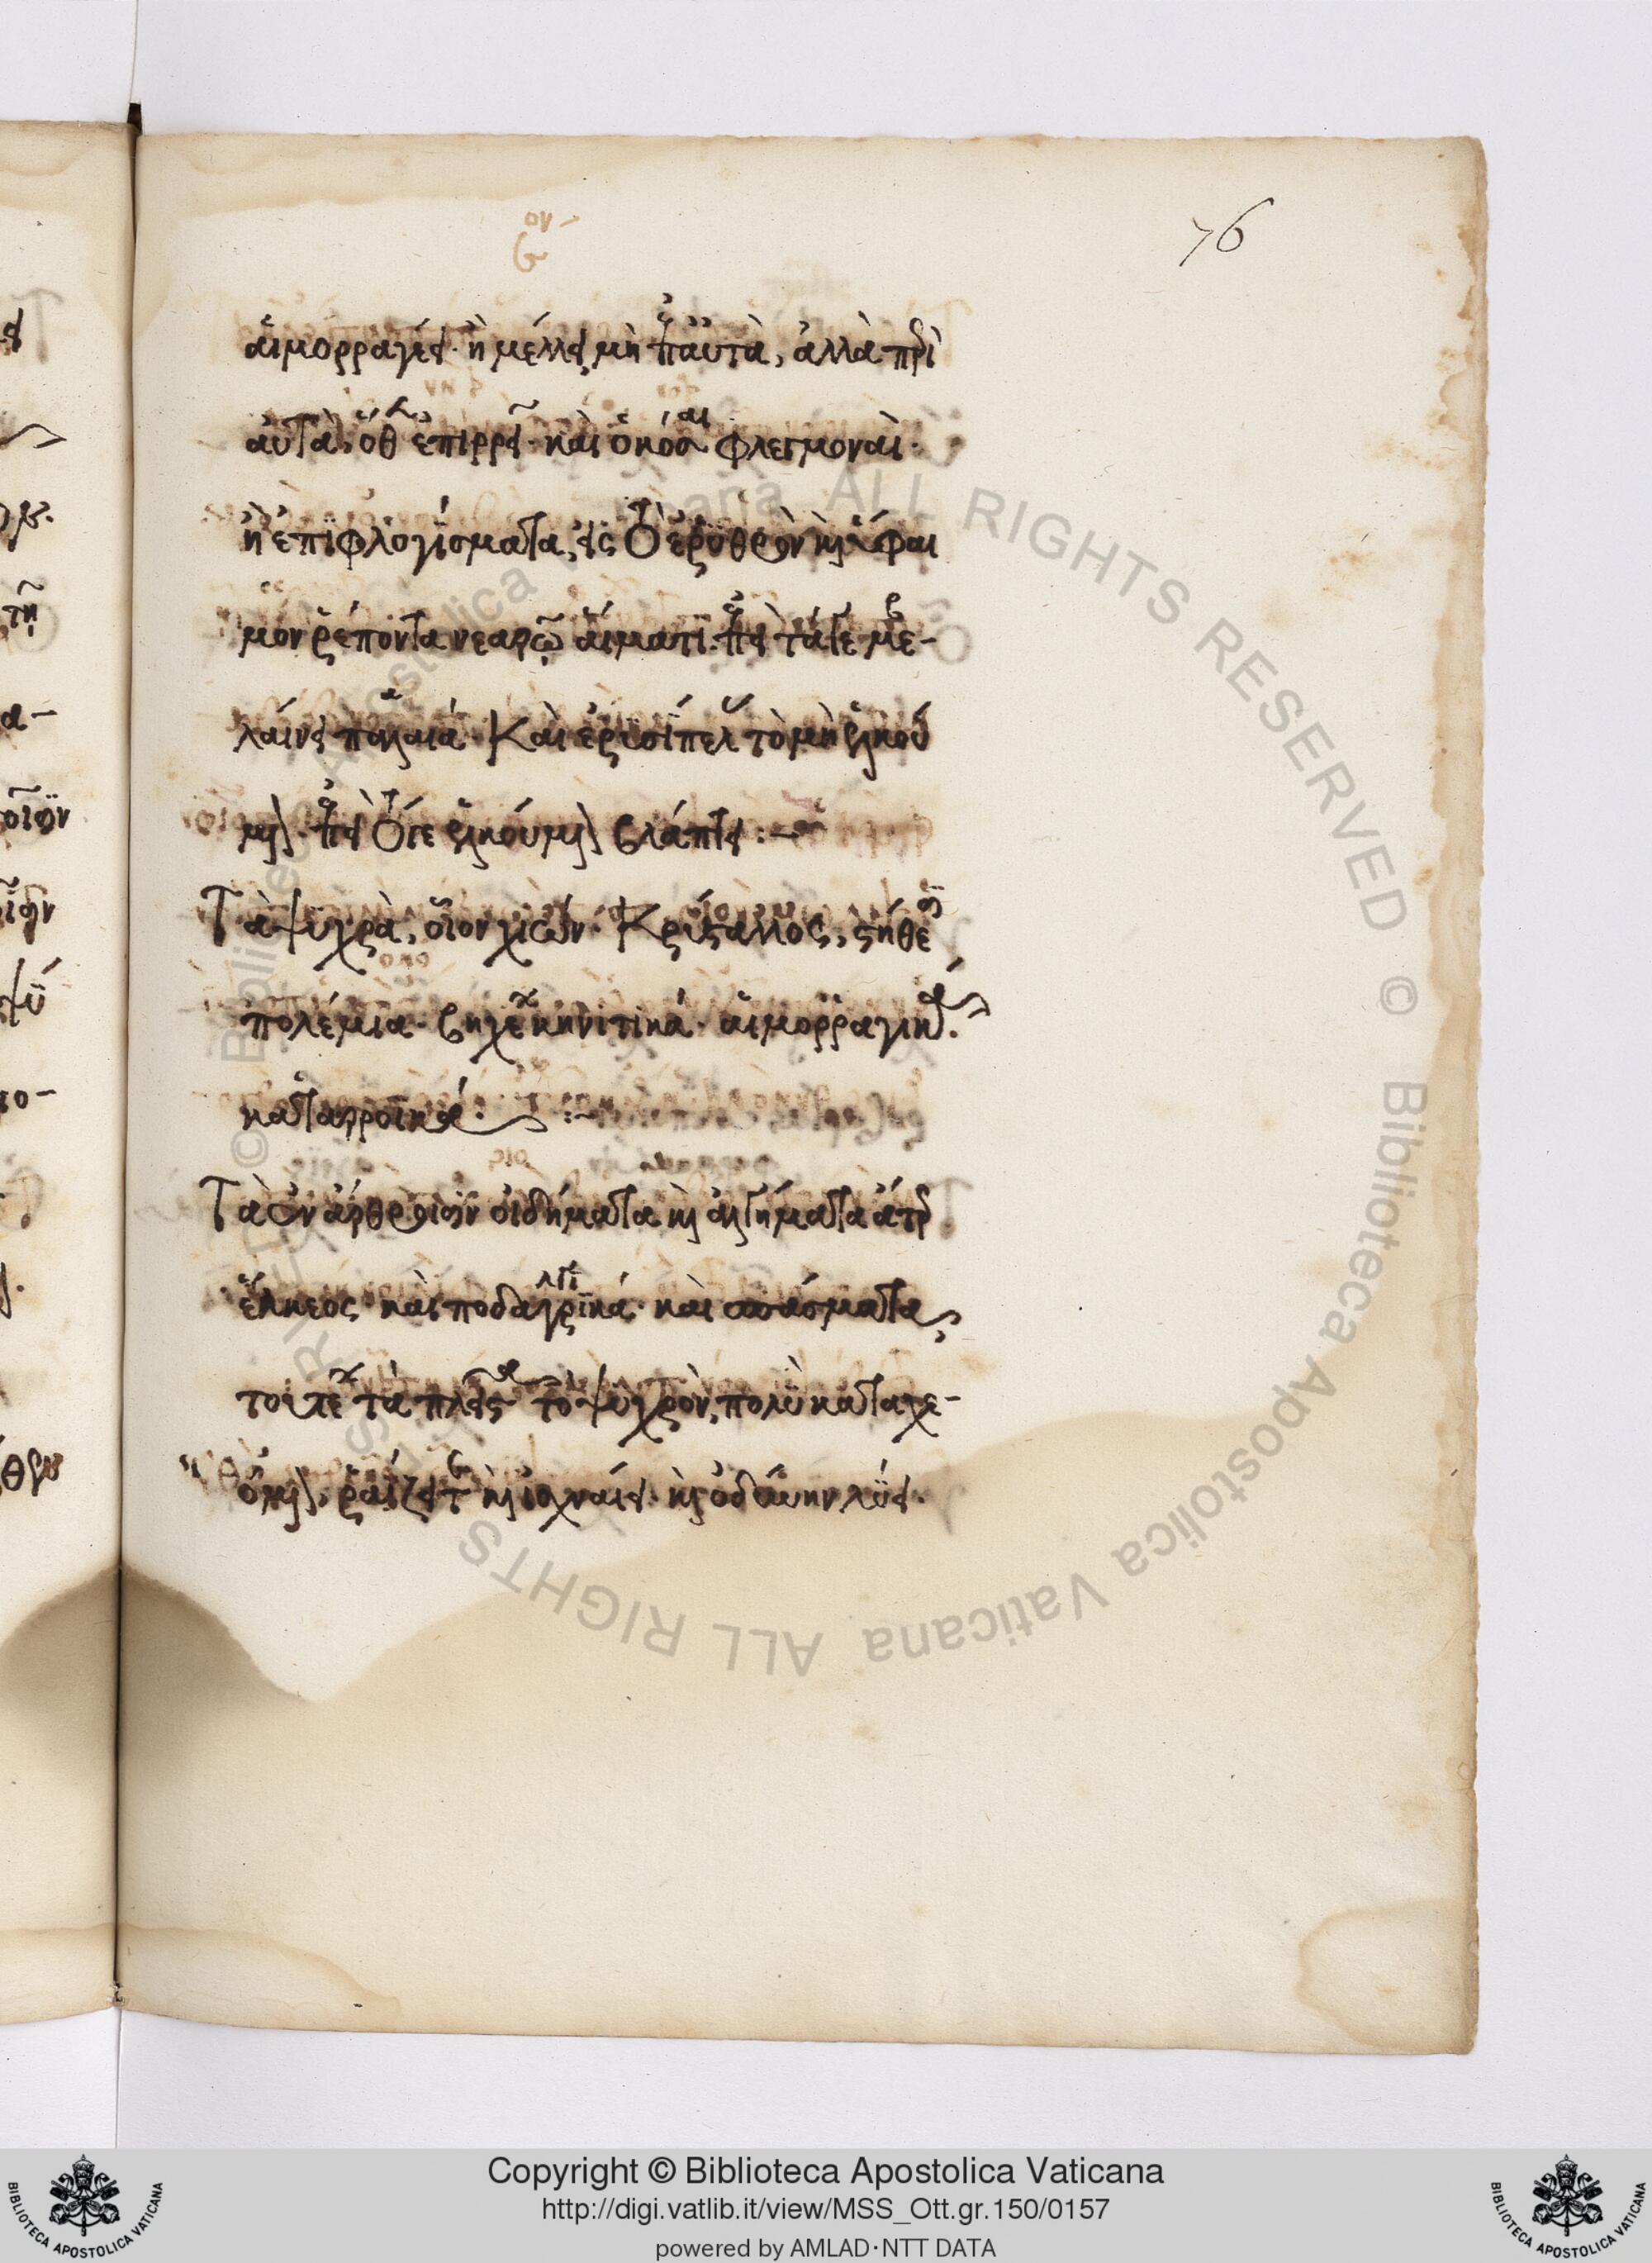 ον
76
αἱμορραγέει· ἢ μέλλει, μὴ ἐπ' αὐτὰ, ἀλλὰ περὶ
αὐτὰ, ὅθεν ἐπιρρεῖ· καὶ ὁκόσαι φλεγμοναὶ·
ἢ ἐπιφλογίσματα, εἰς τὸ ἐρυθρὸν καὶ ὕφαι
μον ῥέποντα νεαρῷ αἵματι. ἐπεὶ τά γε με-
λαίνει παλαιά· Καὶ ἐρυσίπελας τὸ μὴ ἑλκού
μενον· ἐπεὶ τό γε ἑλκούμενον βλάπτει :-
Τὰ ψυχρὰ, οἷον χιὼν· Κρύσταλλος, στήθεϊ
πολέμια· βηχέων κινητικά· αἱμορραγικά.
καταρροϊκά· :~
Τὰ ἐν ἄρθροισιν οἰδήματα καὶ ἀλγήματα ἄτερ
ἕλκεος· καὶ ποδαγρικά· καὶ σπάσματα,
τουτέων τὰ πλεῖστα τὸ ψυχρὸν, πολὺ καταχε-
όμενον, ῥαΐζει τε καὶ ἰσχναίνει· καὶ ὀδύνην λύει·
Copyright © Biblioteca Apostolica Vaticana
http://digi.vatlib.it/view/MSS_Ott.gr.150/0157
powered by AMLAD·NTT DATA
© Biblioteca Apostolica Vaticana ALL RIGHTS RESERVED
BIBLIOTECA APOSTOLICA VATICANA
BIBLIOTECA APOSTOLICA VATICANA